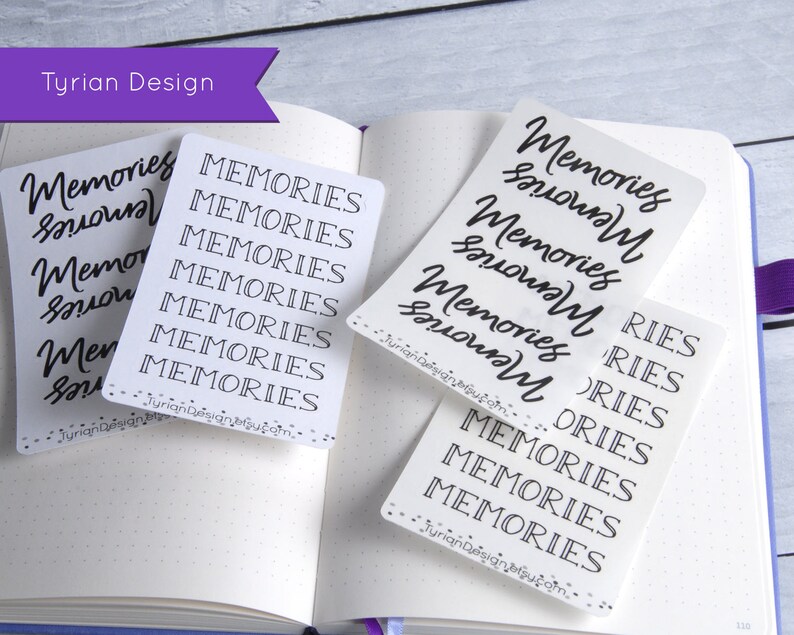 Tyrian Design
Memories
Memories
Memories
Memories
Mem
Memories
TyrianDesign.et
MEMORIES
MEMORIES
MEMORIES
MEMORIES
MEMORIES
MEMORIES
MEMORIES
TyrianDesign.etsy.com
Memories
Memories
Memories
Memories
Memories
Memories
TyrianDesign.etsy.com
MEMORIES
MEMORIES
ORIES
ORIES
MEMORIES
MEMORIES
MEMORIES
TyrianDesign.etsy.com
110